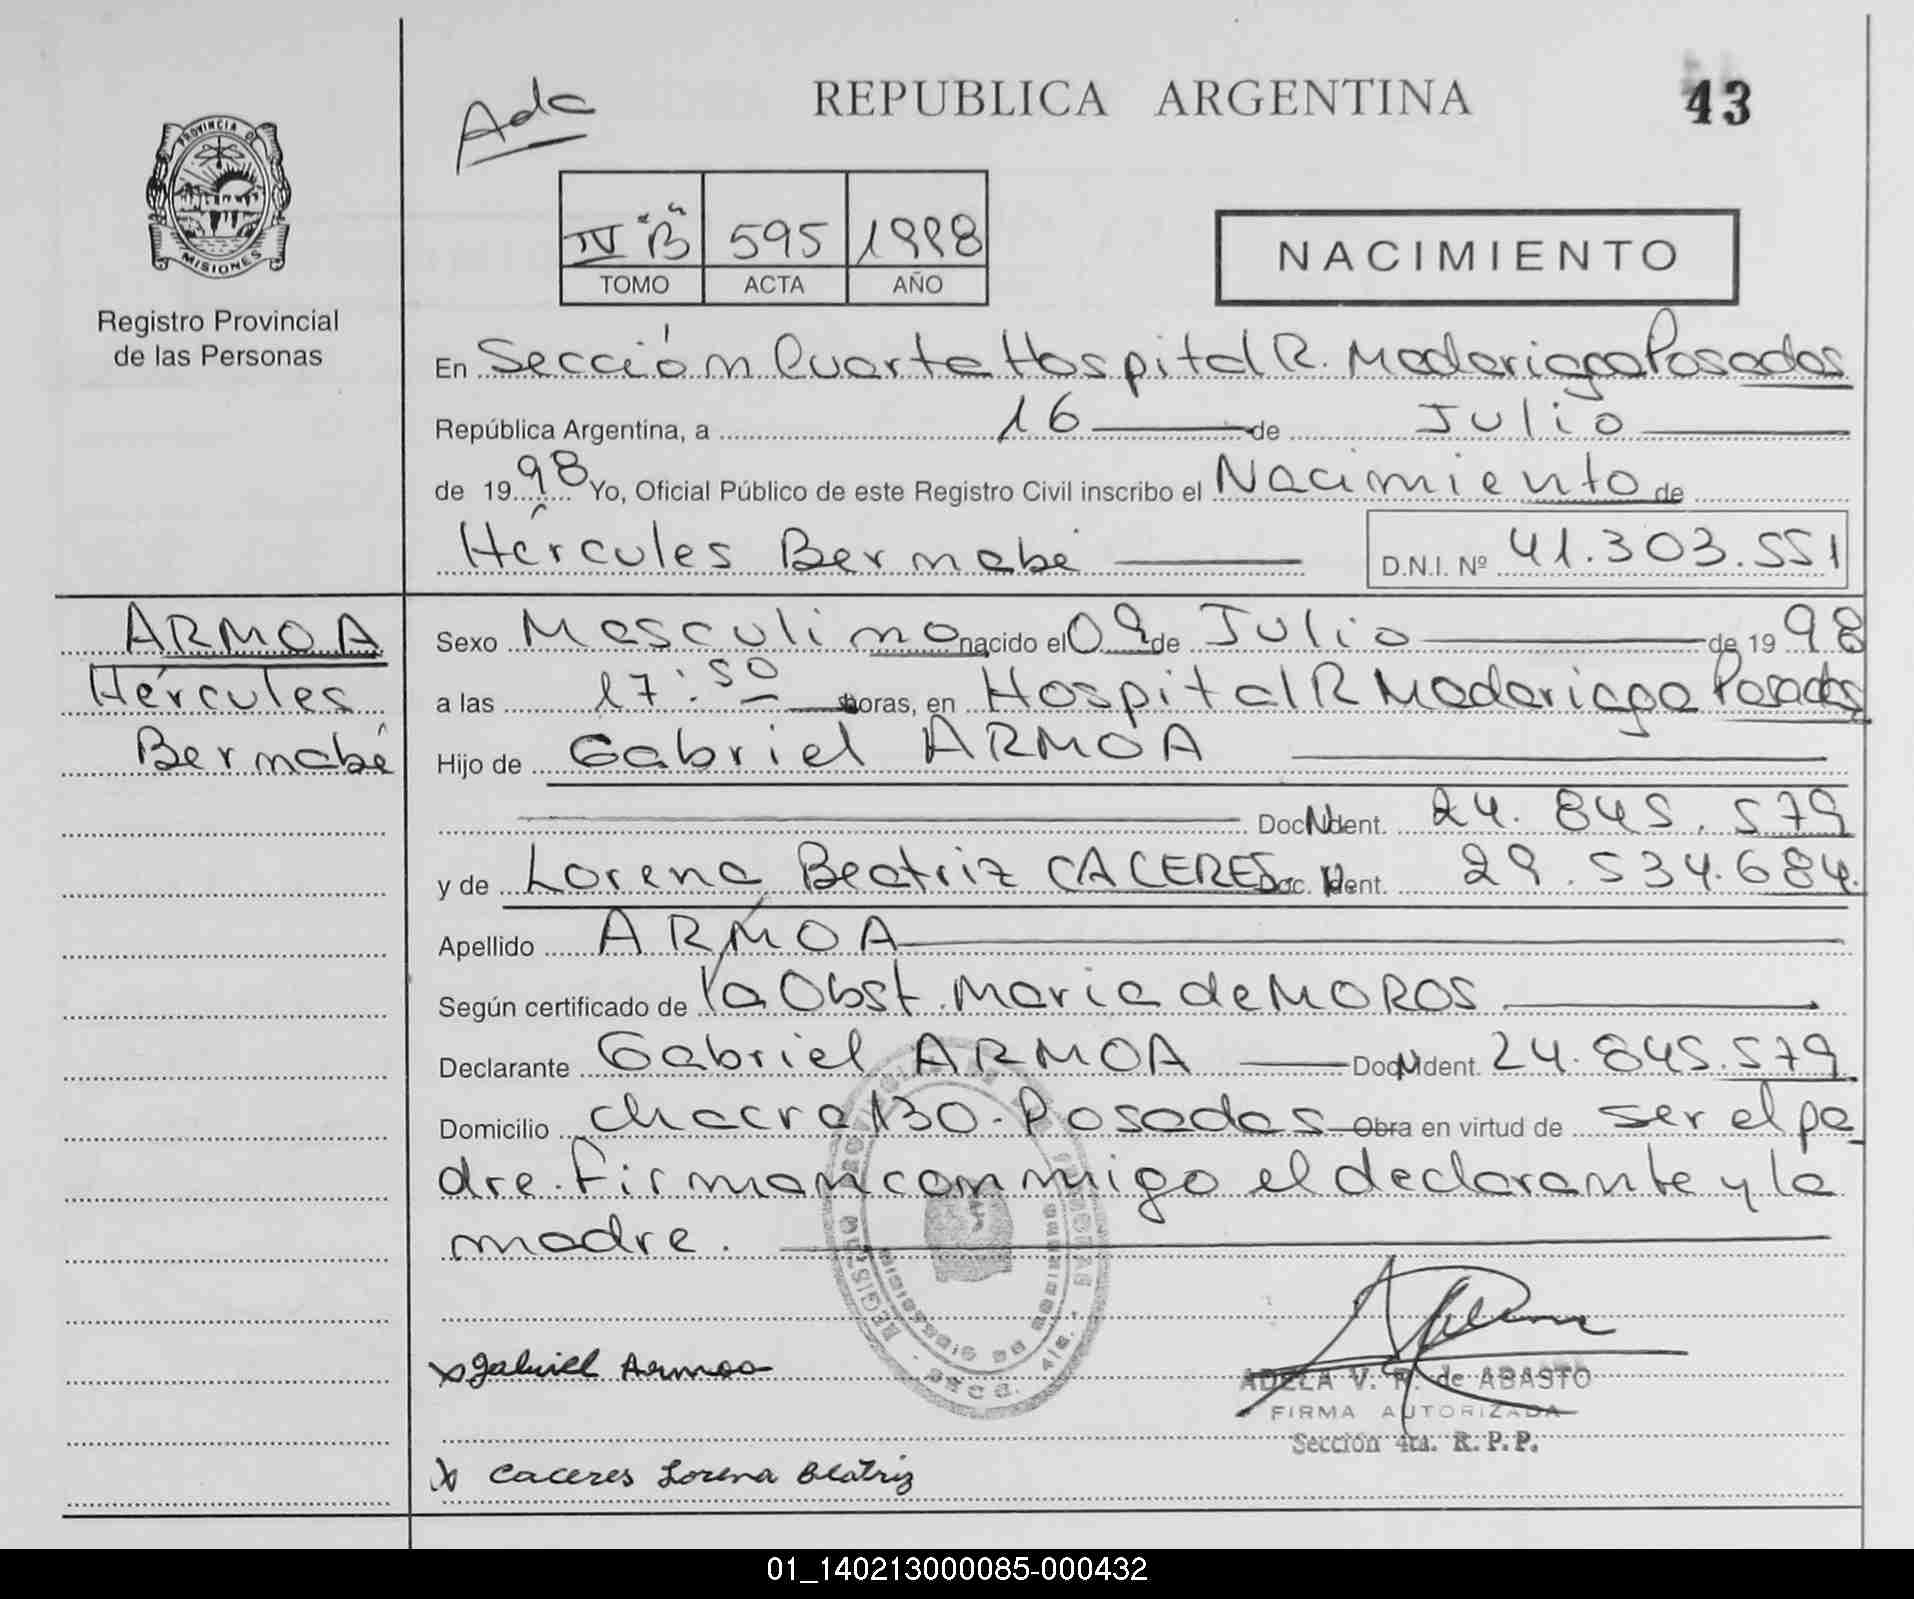 Adc
REPUBLICA ARGENTINA
43
PROVINCIA DE
MISIONES
Registro Provincial
de las Personas
IV "B" 595 1998
TOMO ACTA AÑO
NACIMIENTO
En Sección Cuarta Hospital R. Madariaga Posadas
República Argentina, a 16 de Julio
de 1998 Yo, Oficial Público de este Registro Civil inscribo el Nacimiento de
Hércules Bernabé D.N.I. Nº 41.303.551
ARMOA
Hércules
Bernabé
Sexo Masculino nacido el 09 de Julio de 1998
a las 17:50 horas, en Hospital R Madariaga Posadas
Hijo de Gabriel ARMOA
Doc. Ident. 24.845.579
y de Lorena Beatriz CACERES Doc. Ident. 29.534.684.
Apellido ARMOA
Según certificado de la Obst. Maria de MOROS
Declarante Gabriel ARMOA Doc. Ident. 24.845.579
Domicilio chacra 130 - Posadas Obra en virtud de ser el pa
dre. Firman conmigo el declarante y la
madre.
x Gabriel Armoa
ADELA V. R. de ABASTO
FIRMA AUTORIZADA
Sección 4ta. R.P.P.
x Caceres Lorena Beatriz
01_140213000085-000432